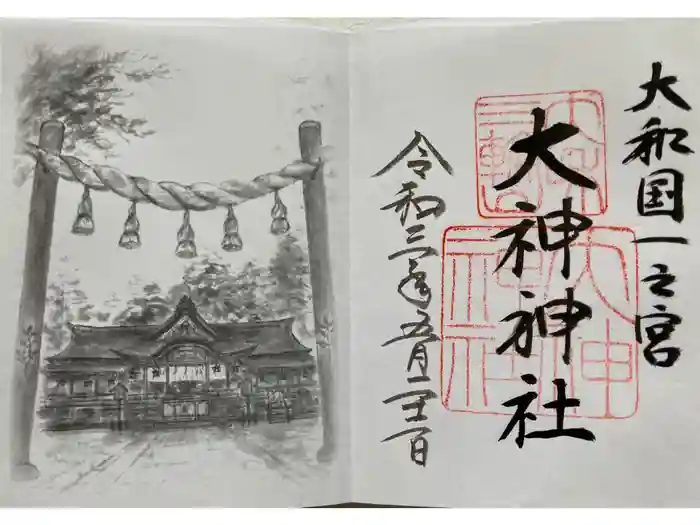 大和国一之宮
大神神社
令和三年五月二十一日
大神神社